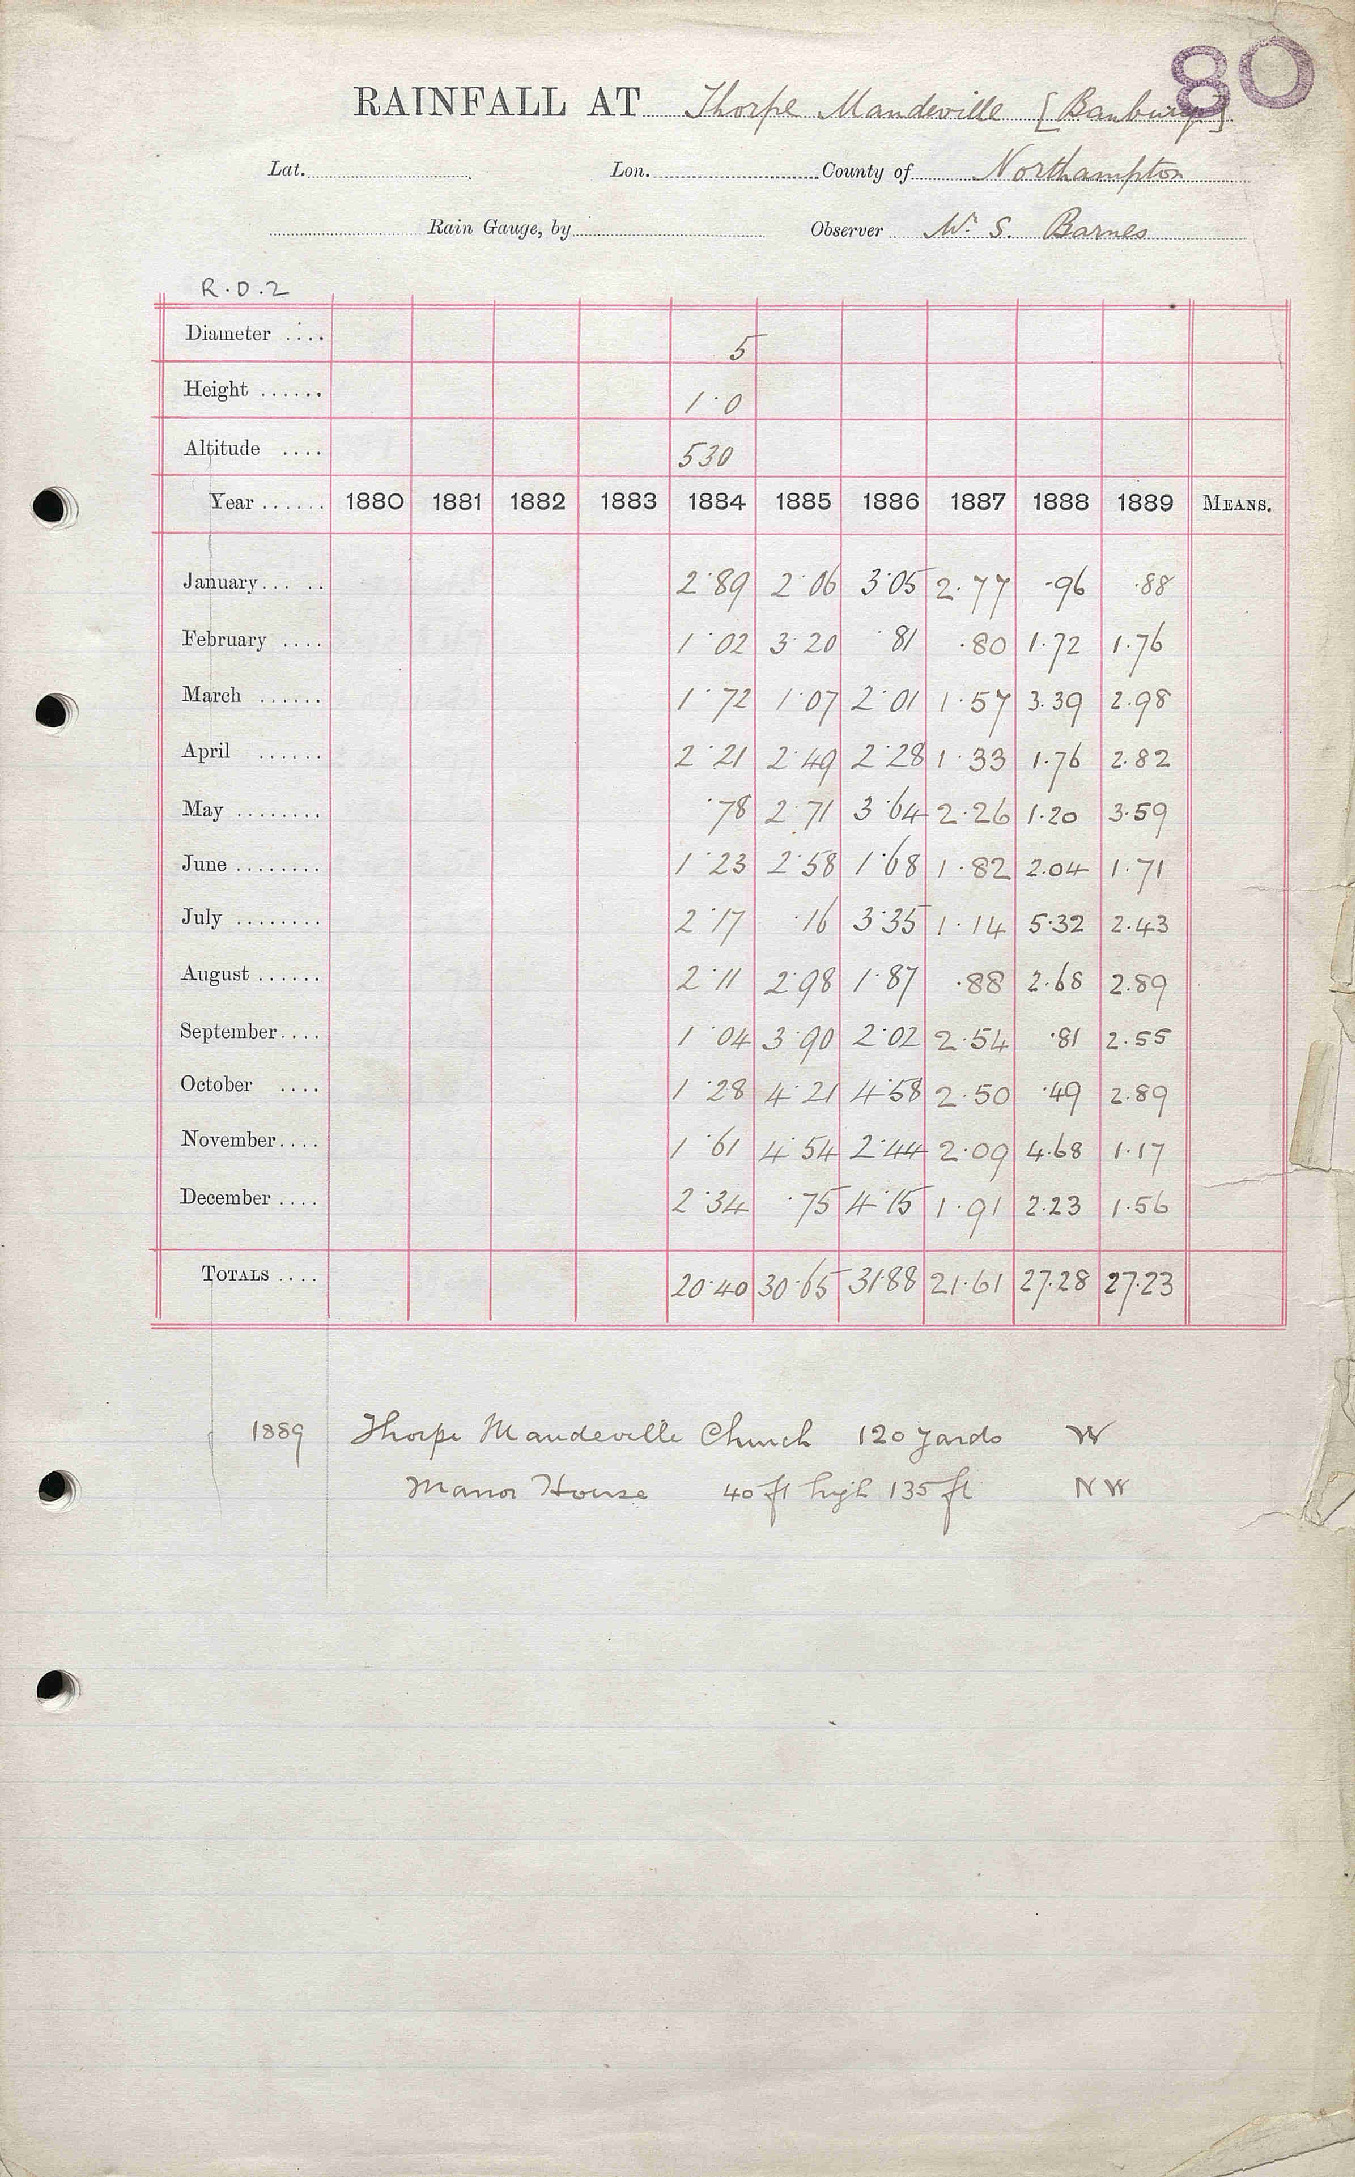 80
RAINFALL AT Thorpe Mandeville [Banbury]
Lat. Lon. County of Northampton
Rain Gauge, by Observer W. S. Barnes
R.O.2
Diameter .... 5
Height ...... 1·0
Altitude .... 530
Year ...... 1880 1881 1882 1883 1884 1885 1886 1887 1888 1889 MEANS.
January... .. 2·89 2·06 3·05 2.77 ·96 ·88
February .... 1·02 3·20 ·81 ·80 1.72 1.76
March ...... 1·72 1·07 2·01 1·57 3.39 2.98
April ...... 2·21 2·49 2·28 1·33 1.76 2.82
May ........ ·78 2·71 3·64 2·26 1·20 3·59
June ........ 1·23 2·58 1·68 1·82 2.04 1.71
July ........ 2·17 ·16 3·35 1·14 5·32 2.43
August ...... 2·11 2·98 1·87 ·88 2.68 2.89
September.... 1·04 3·90 2·02 2·54 ·81 2.55
October .... 1·28 4·21 4·58 2·50 ·49 2.89
November.... 1·61 4·54 2·44 2·09 4.68 1·17
December .... 2·34 ·75 4·15 1·91 2.23 1·56
TOTALS .... 20·40 30·65 31·88 21·61 27.28 27·23
1889 Thorpe Mandeville Church 120 yards W
Manor House 40 ft high 135 ft NW